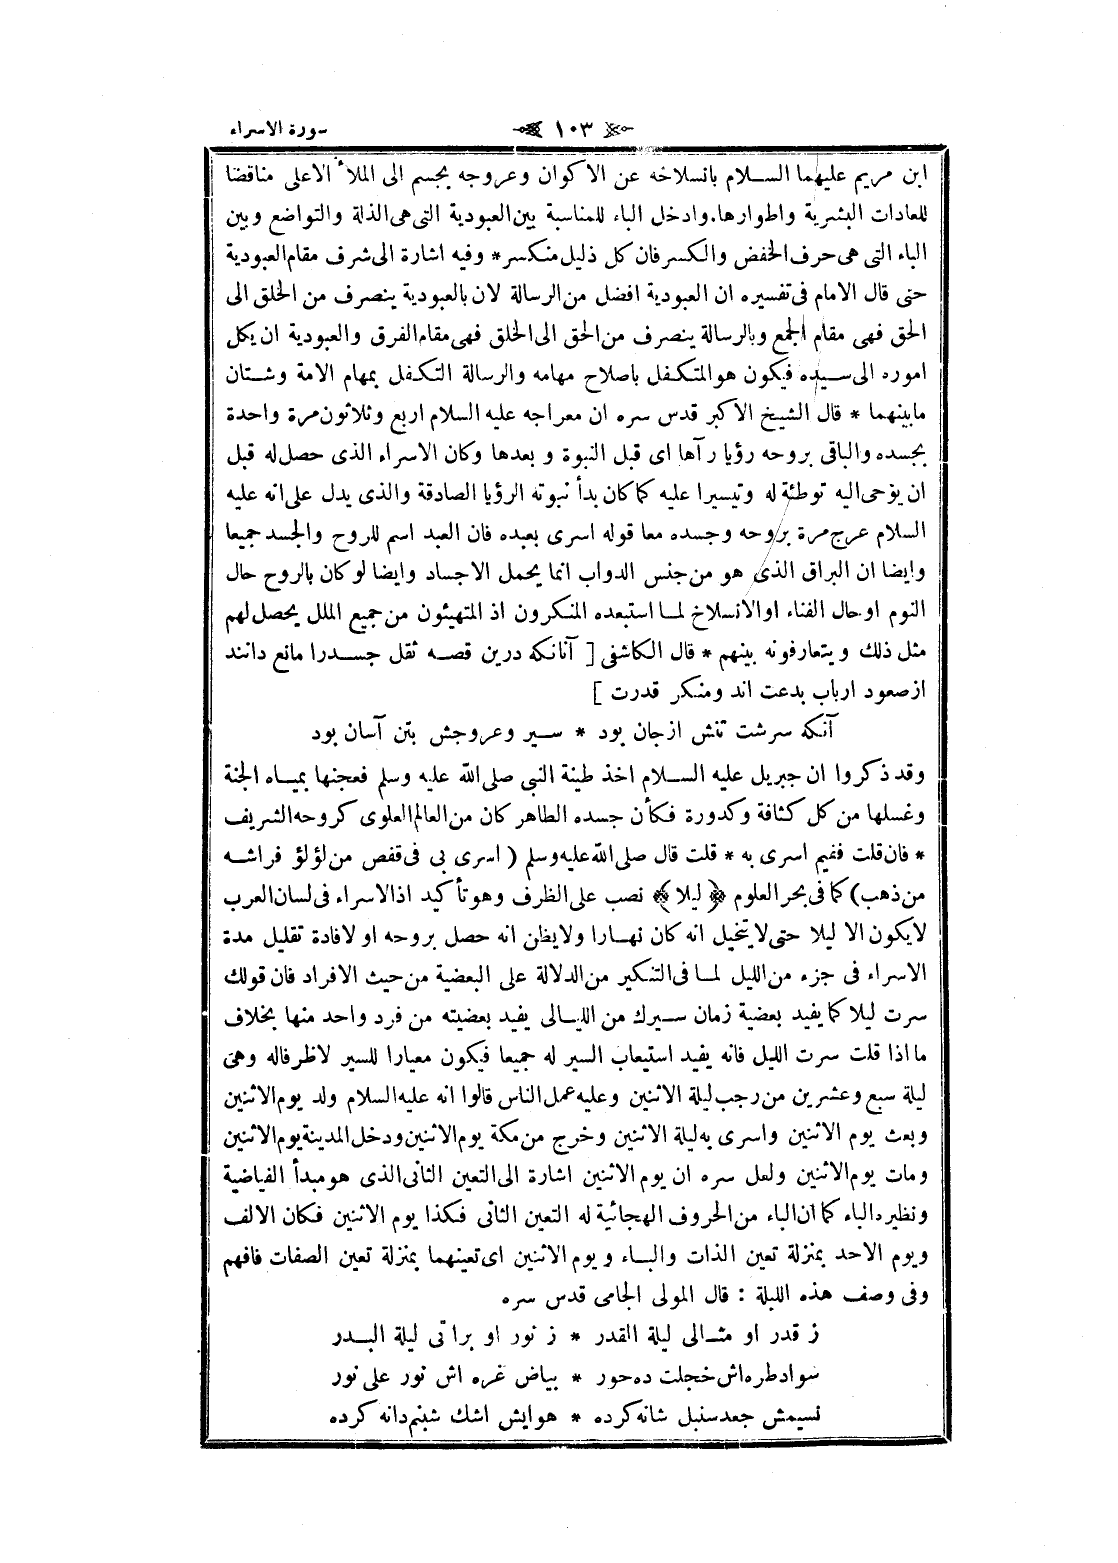 سورة الاسراء
١٠٣
ابن مريم عليهما السلام بانسلاخه عن الاكوان وعروجه بجسم الى الملأ الاعلى مناقضا
للعادات البشرية واطوارها. وادخل الباء للمناسبة بين العبودية التى هى الذلة والتواضع وبين
الباء التى هى حرف الخفض والكسر فان كل ذليل منكسر * وفيه اشارة الى شرف مقام العبودية
حتى قال الامام فى تفسيره ان العبودية افضل من الرسالة لان بالعبودية ينصرف من الخلق الى
الحق فهى مقام الجمع وبالرسالة ينصرف من الحق الى الخلق فهى مقام الفرق والعبودية ان يكل
اموره الى سيده فيكون هو المتكفل باصلاح مهامه والرسالة التكفل بمهام الامة وشتان
مابينهما * قال الشيخ الاكبر قدس سره ان معراجه عليه السلام اربع وثلاثون مرة واحدة
بجسده والباقى بروحه رؤيا رآها اى قبل النبوة و بعدها وكان الاسراء الذى حصل له قبل
ان يؤحى اليه توطئة له وتيسيرا عليه كما كان بدأ نبوته الرؤيا الصادقة والذى يدل على انه عليه
السلام عرج مرة بروحه وجسده معا قوله اسرى بعبده فان العبد اسم للروح والجسد جميعا
وايضا ان البراق الذى هو من جنس الدواب انما يحمل الاجساد وايضا لو كان بالروح حال
النوم او حال الفناء او الانسلاخ لما استبعده المنكرون اذ المتهيئون من جميع الملل يحصل لهم
مثل ذلك و يتعارفونه بينهم * قال الكاشفى [ آنانكه درين قصه ثقل جسدرا مانع دانند
از صعود ارباب بدعت اند ومنكر قدرت ]
آنكه سرشت تنش از جان بود * سير وعروجش بتن آسان بود
وقد ذكروا ان جبريل عليه السلام اخذ طينة النبى صلى الله عليه وسلم فعجنها بمياه الجنة
وغسلها من كل كثافة وكدورة فكأن جسده الطاهر كان من العالم العلوى كروحه الشريف
* فان قلت ففيم اسرى به * قلت قال صلى الله عليه وسلم ( اسرى بى فى قفص من لؤلؤ فراشه
من ذهب ) كما فى بحر العلوم ﴿ ليلا ﴾ نصب على الظرف وهو تأكيد اذ الاسراء فى لسان العرب
لا يكون الا ليلا حتى لا يتخيل انه كان نهارا ولا يظن انه حصل بروحه او لافادة تقليل مدة
الاسراء فى جزء من الليل لما فى التنكير من الدلالة على البعضية من حيث الافراد فان قولك
سرت ليلا كما يفيد بعضية زمان سيرك من الليالى يفيد بعضيته من فرد واحد منها بخلاف
ما اذا قلت سرت الليل فانه يفيد استيعاب السير له جميعا فيكون معيارا للسير لا ظرفا له وهى
ليلة سبع وعشرين من رجب ليلة الاثنين وعليه عمل الناس قالوا انه عليه السلام ولد يوم الاثنين
وبعث يوم الاثنين واسرى به ليلة الاثنين وخرج من مكة يوم الاثنين ودخل المدينة يوم الاثنين
ومات يوم الاثنين ولعل سره ان يوم الاثنين اشارة الى التعين الثانى الذى هو مبدأ الفياضية
ونظيره الباء كما ان الباء من الحروف الهجائية له التعين الثانى فكذا يوم الاثنين فكان الالف
ويوم الاحد بمنزلة تعين الذات والباء و يوم الاثنين اى تعينهما بمنزلة تعين الصفات فافهم
وفى وصف هذه الليلة : قال المولى الجامى قدس سره
ز قدر او مثالى ليلة القدر * ز نور او براتى ليلة البدر
سواد طره اش خجلت ده حور * بياض غره اش نور على نور
نسيمش جعد سنبل شانه كرده * هوايش اشك شبنم دانه كرده